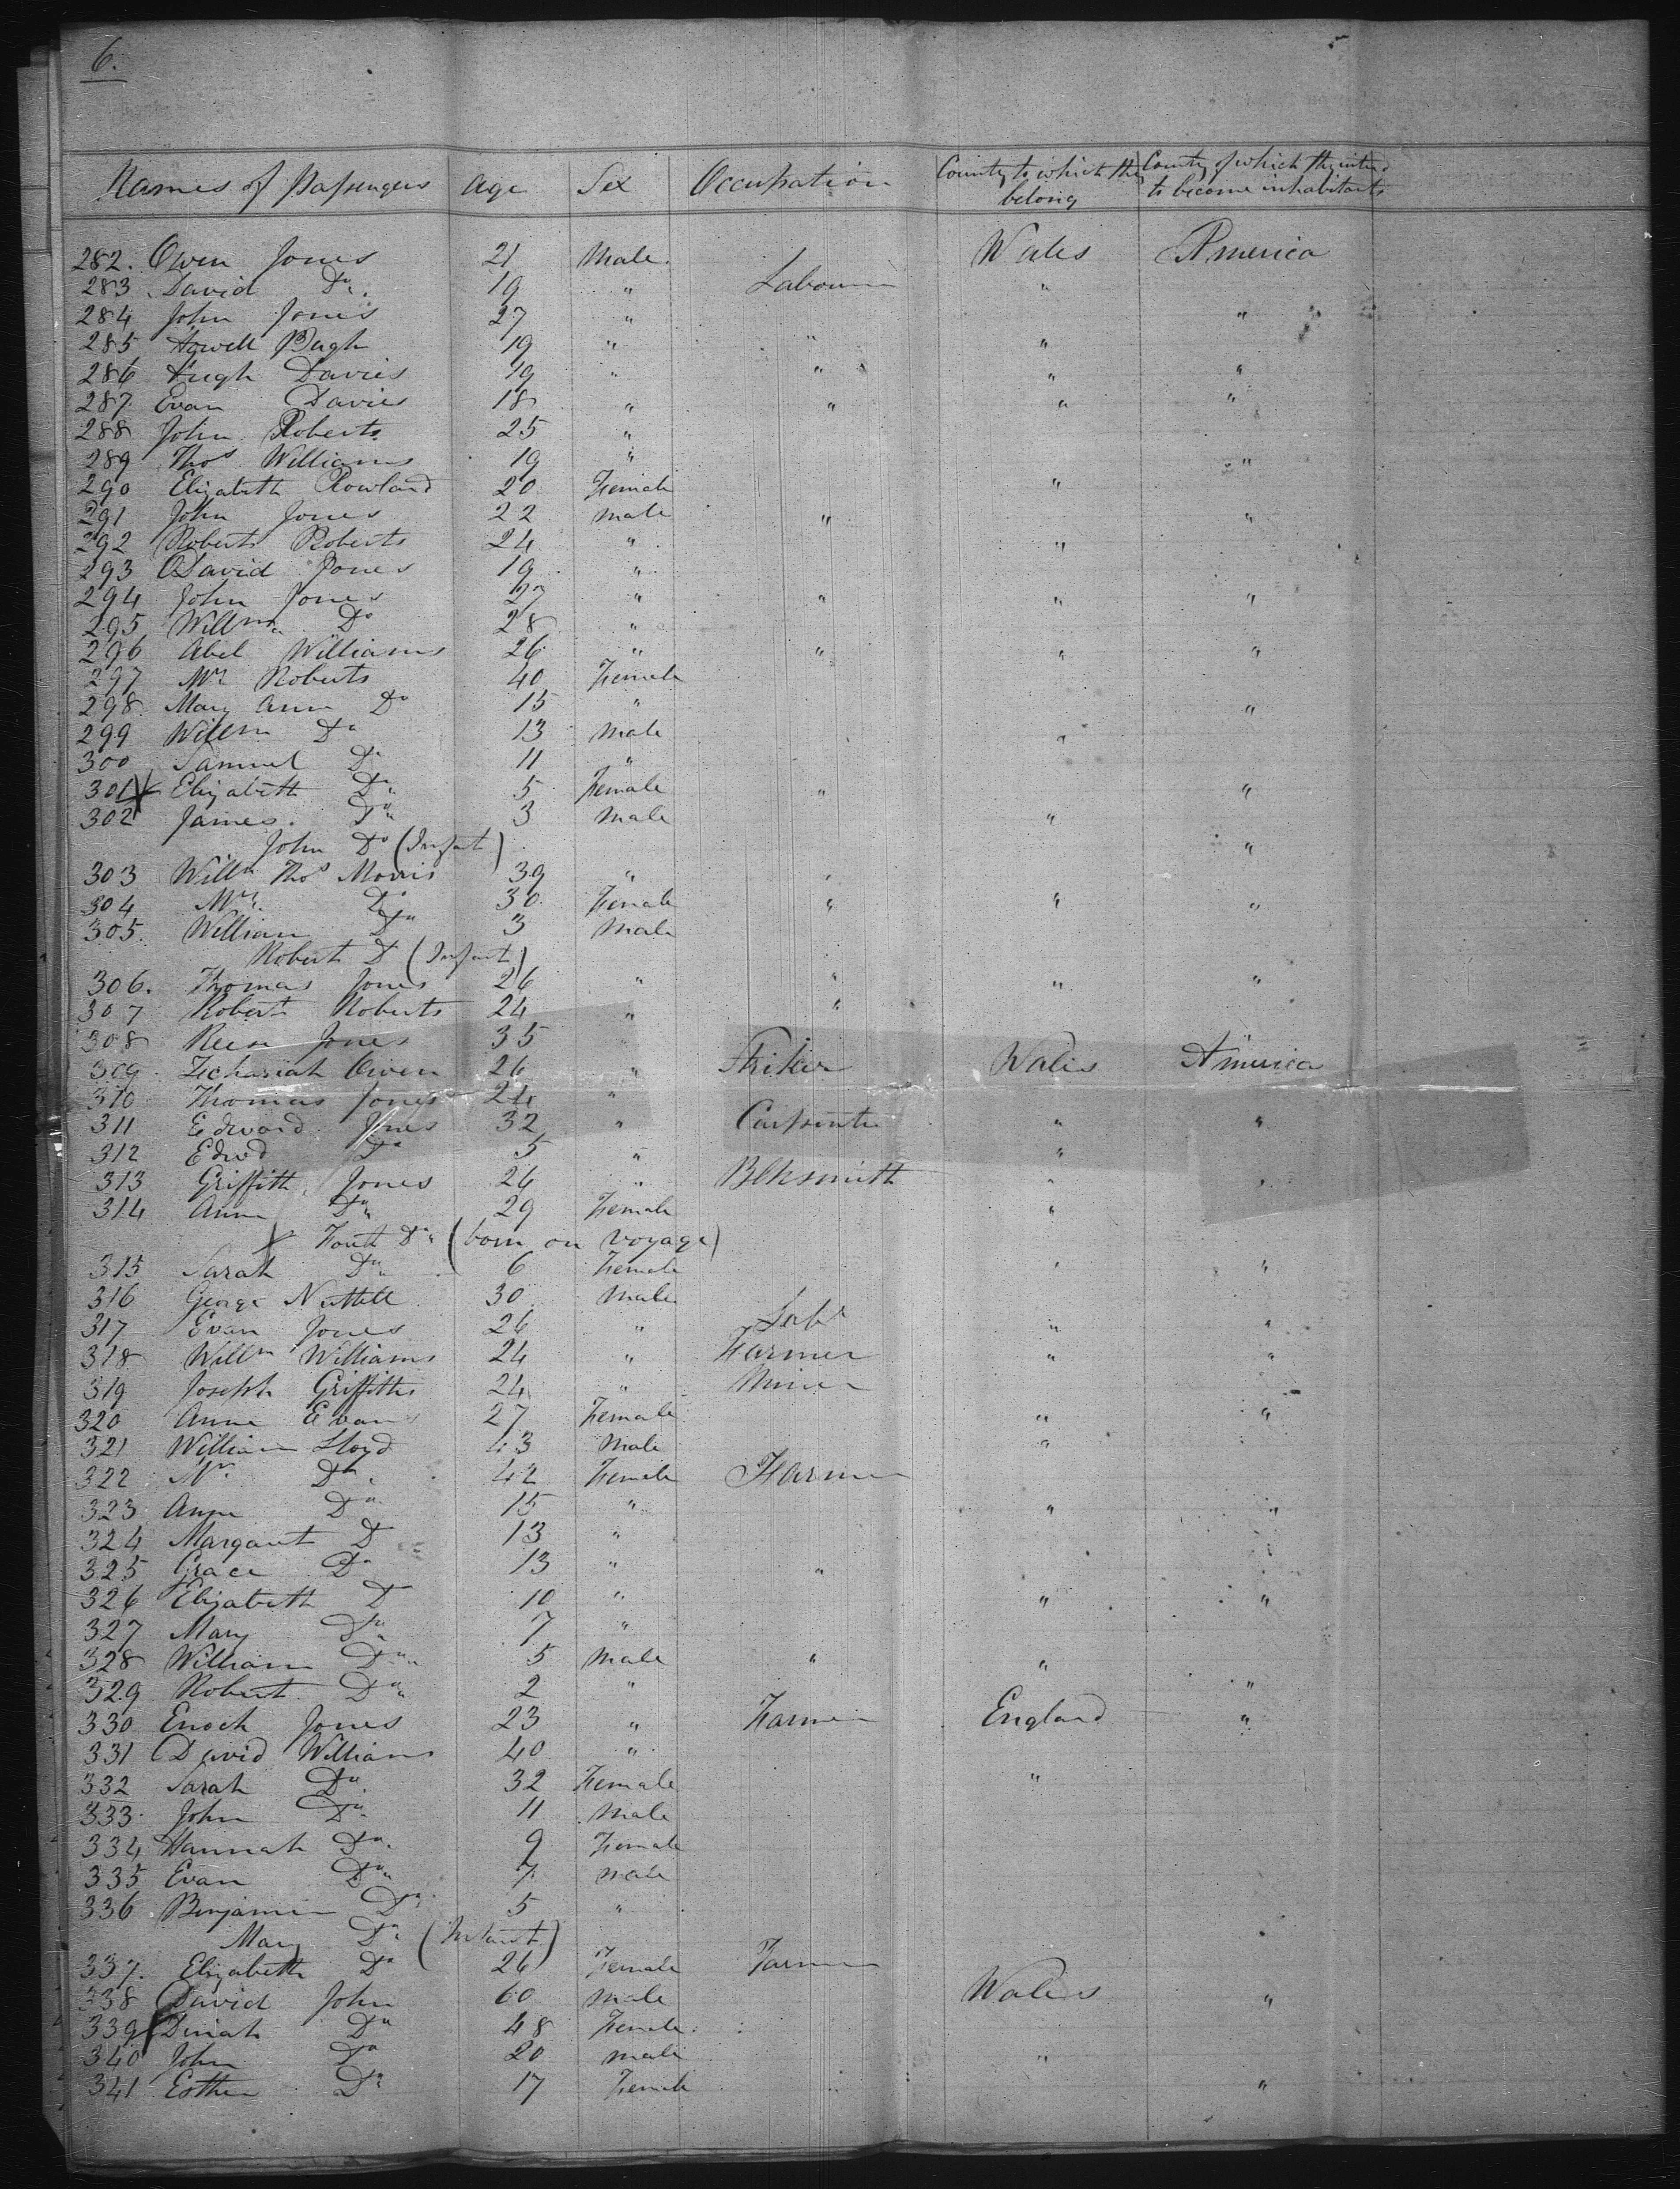 6.
Names of Passengers Age Sex Occupation Country to which they belong Country of which they intend to become inhabitants
282. Owen Jones 21 Male. Wales America
283 David Do. 19 " Labourer "
284 John Jones 27 " "
285 Howell Pugh 19 " " "
286 Hugh Davies 19 " " " "
287 Evan Davies 18 " " " "
288 John Roberts 25 "
289 Thos Williams 19 " "
290 Elizabeth Rowland 20 Female "
291 John Jones 22 Male " "
292 Robert Roberts 24 " "
293 David Jones 19 "
294 John Jones 27 " " " "
295 Willm Do 28 "
296 Abel Williams 26 " " " "
297 Mrs Roberts 40 Female
298 Mary Ann Do 15 " "
299 Willm Do 13 Male "
300 Samuel Do 11 "
301 Elizabeth Do 5 Female " "
302 James. Do 3 Male "
John Do (Infant) "
303 Willm Thos Morris 39 " "
304 Mrs. Do 30 Female " " "
305. William Do 3 Male
Robert D (Infant)
306. Thomas Jones 26 " " " "
307 Robert Roberts 24 " "
308 Reese Jones 35
309 Zechariah Owen 26 " Wales America
310 Thomas Jones 24 "
311 Edward Jones 32 " Carpenter " "
312 Edwd Do 5 " "
313 Griffith Jones 26 " Blksmith " "
314 Anne Do 29 Female "
Do (born on voyage)
315 Sarah Do 6 Female " "
316 George Nuttell 30 Male
317 Evan Jones 26 " Labr " "
318 Willm Williams 24 " Farmer " "
319 Joseph Griffiths 24 " Miner
320 Anne Evans 27 Female " "
321 William Lloyd 43 Male "
322 Mrs. Do. 42 Female Farmer
323 Anne Do 15 " " "
324 Margaret D 13 "
325 Grace Do 13 " "
326 Elizabeth D 10 " " "
327 Mary Do 7 "
328 William Do 5 Male " "
329 Robert. Do 2 " "
330 Enoch Jones 23 " Farmer England "
331 David Williams 40 "
332 Sarah Do. 32 Female "
333. John Do 11 Male
334 Hannah Do. 9 Female
335 Evan Do 7 Male
336 Benjamin Do 5 "
Mary Do (Infant)
337. Elizabeth Do 26 Female Farmer
338 David John 60 Male Wales "
339 Dinah Do 48 Female.
340 John Do 20 Male "
341 Esther Do 17 Female "